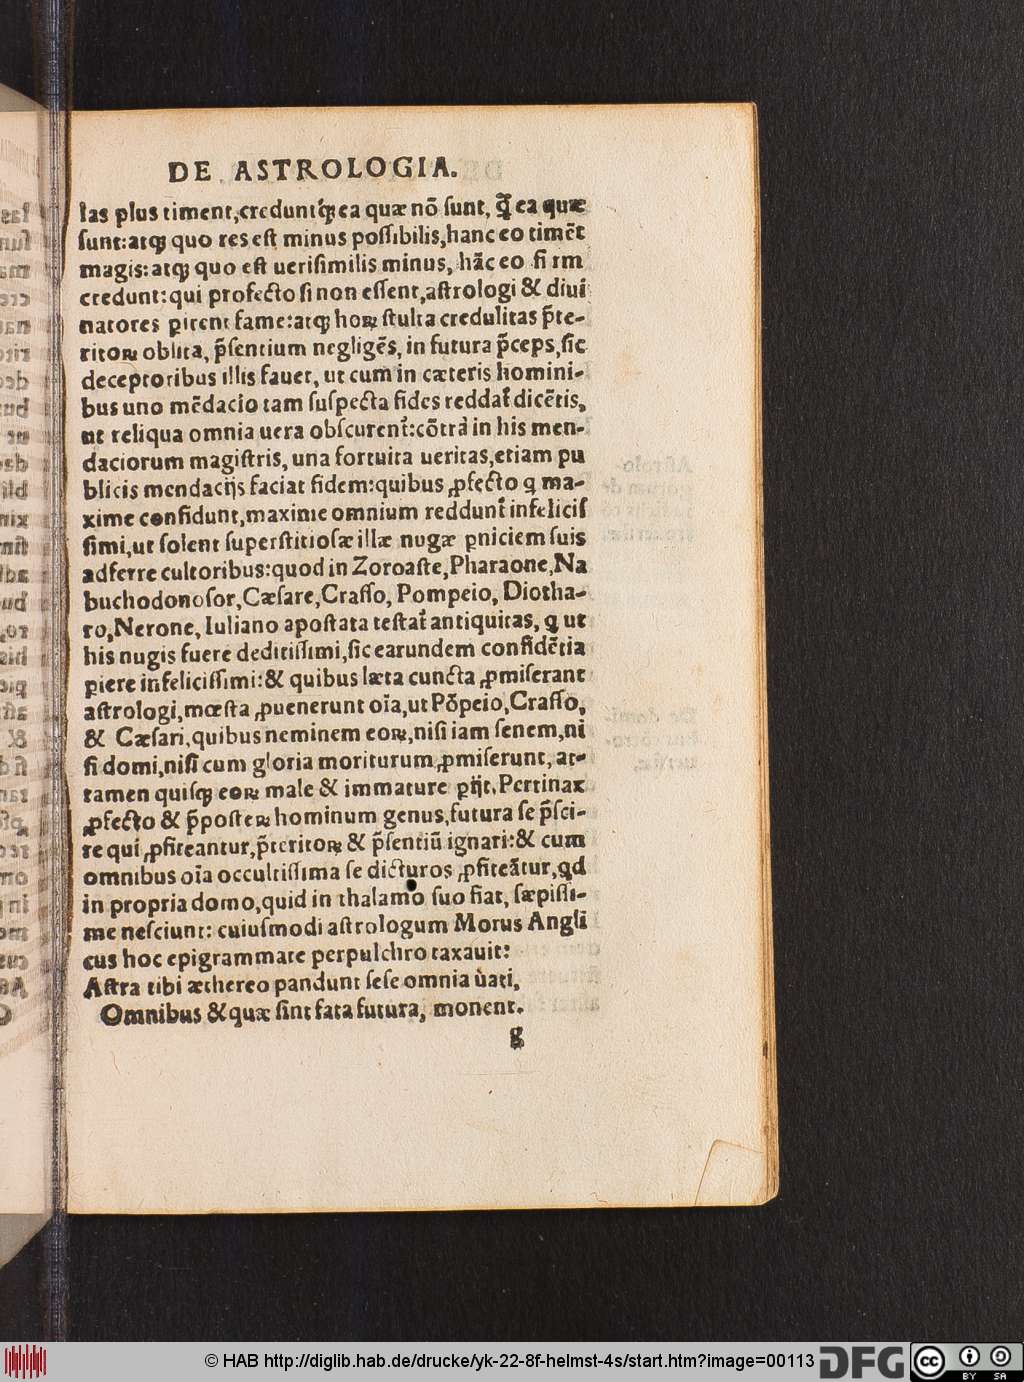 DE ASTROLOGIA.
las plus timent, creduntq́ꝫ ea quæ nõ sunt, q̃ ea quæ
sunt: atqꝫ quo res est minus possibilis, hanc eo timẽt
magis: atqꝫ quo est uerisimilis minus, hãc eo firm
credunt: qui profecto si non essent, astrologi & diui
natores ꝑirent fame: atqꝫ hoꝝ stulta credulitas p̃te-
ritoꝝ oblita, p̃sentium negligẽs, in futura p̃ceps, sic
deceptoribus illis fauet, ut cum in cæteris homini-
bus uno mẽdacio tam suspecta fides reddat᷑ dicẽtis,
ut reliqua omnia uera obscurent᷑: cõtrà in his men-
daciorum magistris, una fortuita ueritas, etiam pu
blicis mendacijs faciat fidem: quibus ꝓfecto q ma-
xime confidunt, maxime omnium reddunt᷑ infelicis
simi, ut solent superstitiosæ illæ nugæ ꝑniciem suis
adferre cultoribus: quod in Zoroaste, Pharaone, Na
buchodonosor, Cæsare, Crasso, Pompeio, Diotha-
ro, Nerone, Iuliano apostata testat᷑ antiquitas, q ut
his nugis fuere deditissimi, sic earundem confidẽtia
ꝑiere infelicissimi: & quibus læta cuncta ꝓmiserant
astrologi, mœsta ꝓuenerunt oĩa, ut Põpeio, Crasso,
& Cæsari, quibus neminem eoꝝ, nisi iam senem, ni
si domi, nisi cum gloria moriturum ꝓmiserunt, at-
tamen quisqꝫ eoꝝ male & immature ꝑijt. Pertinax
ꝓfecto & p̃posteꝝ hominum genus, futura se p̃sci-
re qui ꝓfiteantur, p̃teritoꝝ & p̃sentiũ ignari: & cum
omnibus oĩa occultissima se dicturos ꝓfiteãtur, qd
in propria domo, quid in thalamo suo fiat, sæpissi-
me nesciunt: cuiusmodi astrologum Morus Angli
cus hoc epigrammate perpulchro taxauit:
Astra tibi æthereo pandunt sese omnia ùati,
Omnibus & quæ sint fata futura, monent.
g
© HAB http://diglib.hab.de/drucke/yk-22-8f-helmst-4s/start.htm?image=00113
DFG
cc
BY SA